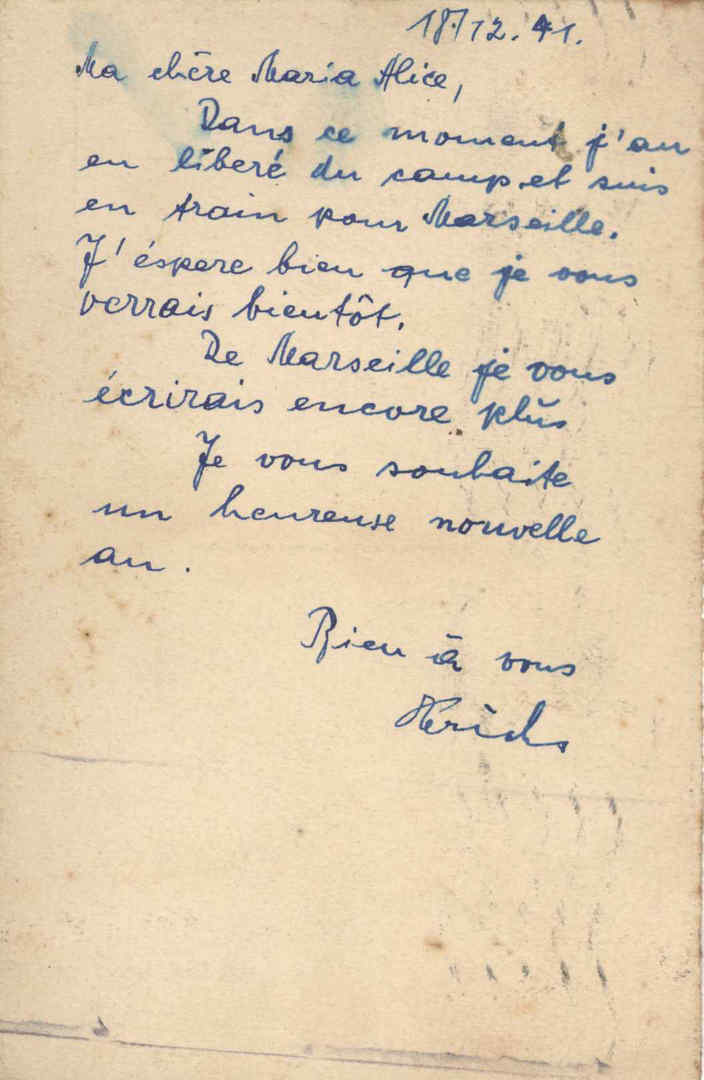 18/12.41.
Ma chère Maria Alice,
Dans ce moment j'au
en liberé du camp et suis
en train pour Marseille.
J'éspere bien que je vous
verrais bientôt.
De Marseille je vous
écrirais encore plus
Je vous souhaite
un heureuse nouvelle
an.
Bien à vous